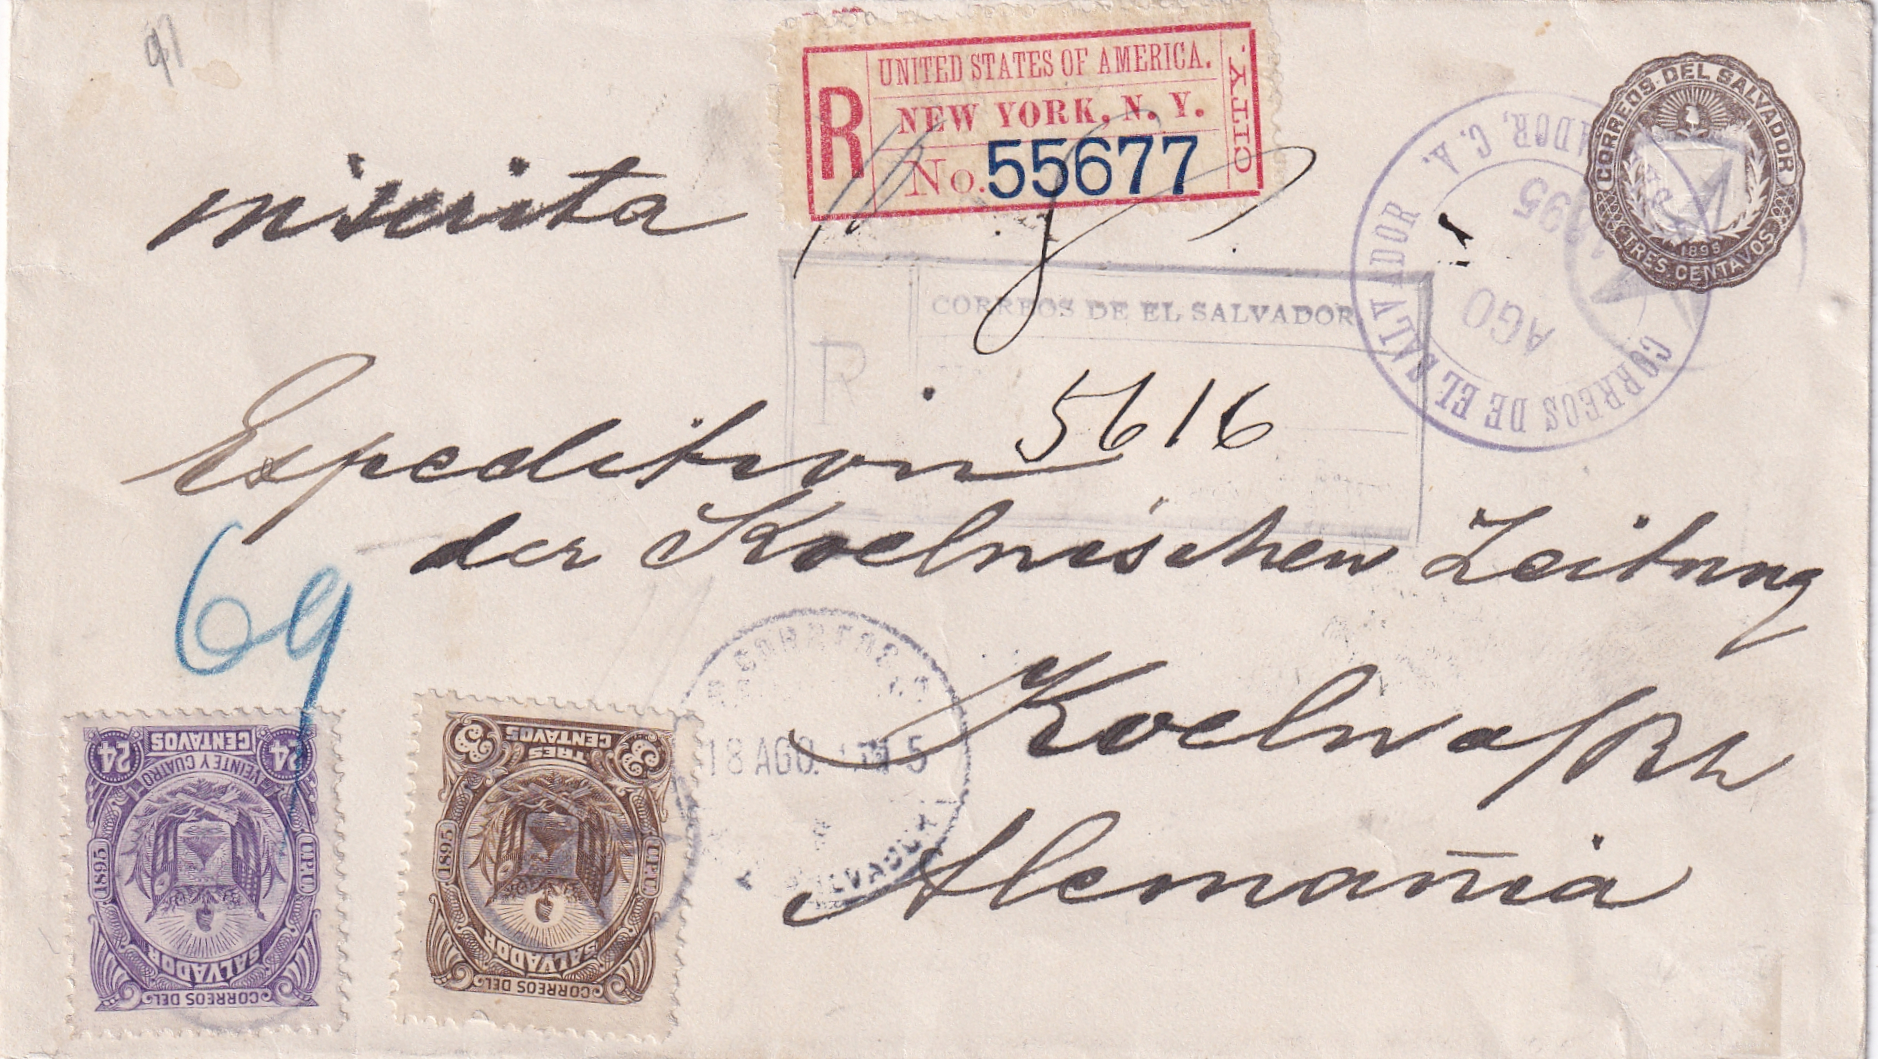 91
UNITED STATES OF AMERICA.
R
NEW YORK, N. Y.
No. 55677
CITY.
CORREOS DEL SALVADOR
1895
TRES CENTAVOS
CORREOS DE EL SALVADOR
SALVADOR, C. A.
AGO
1895
inscrita
CORREOS DE EL SALVADOR
R
5616
Expedition
der Koelnischen Zeitung
Koeln a/Rh
Alemañia
69
CORREOS
18 AGO. 5
SALVADOR
CORREOS DEL
SALVADOR
1895
U.P.U.
VEINTE Y CUATRO
24 CENTAVOS 24
CORREOS DEL
SALVADOR
1895
U.P.U.
3 TRES 3
CENTAVOS